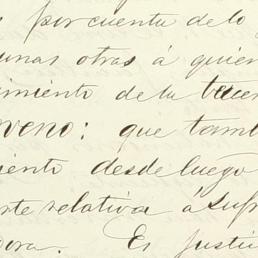 por cuenta de lo
unas otras á quien
imiento de la buen
veno: que tamb
iento desde luego
rte relativa á Sufr
dora. Es justi